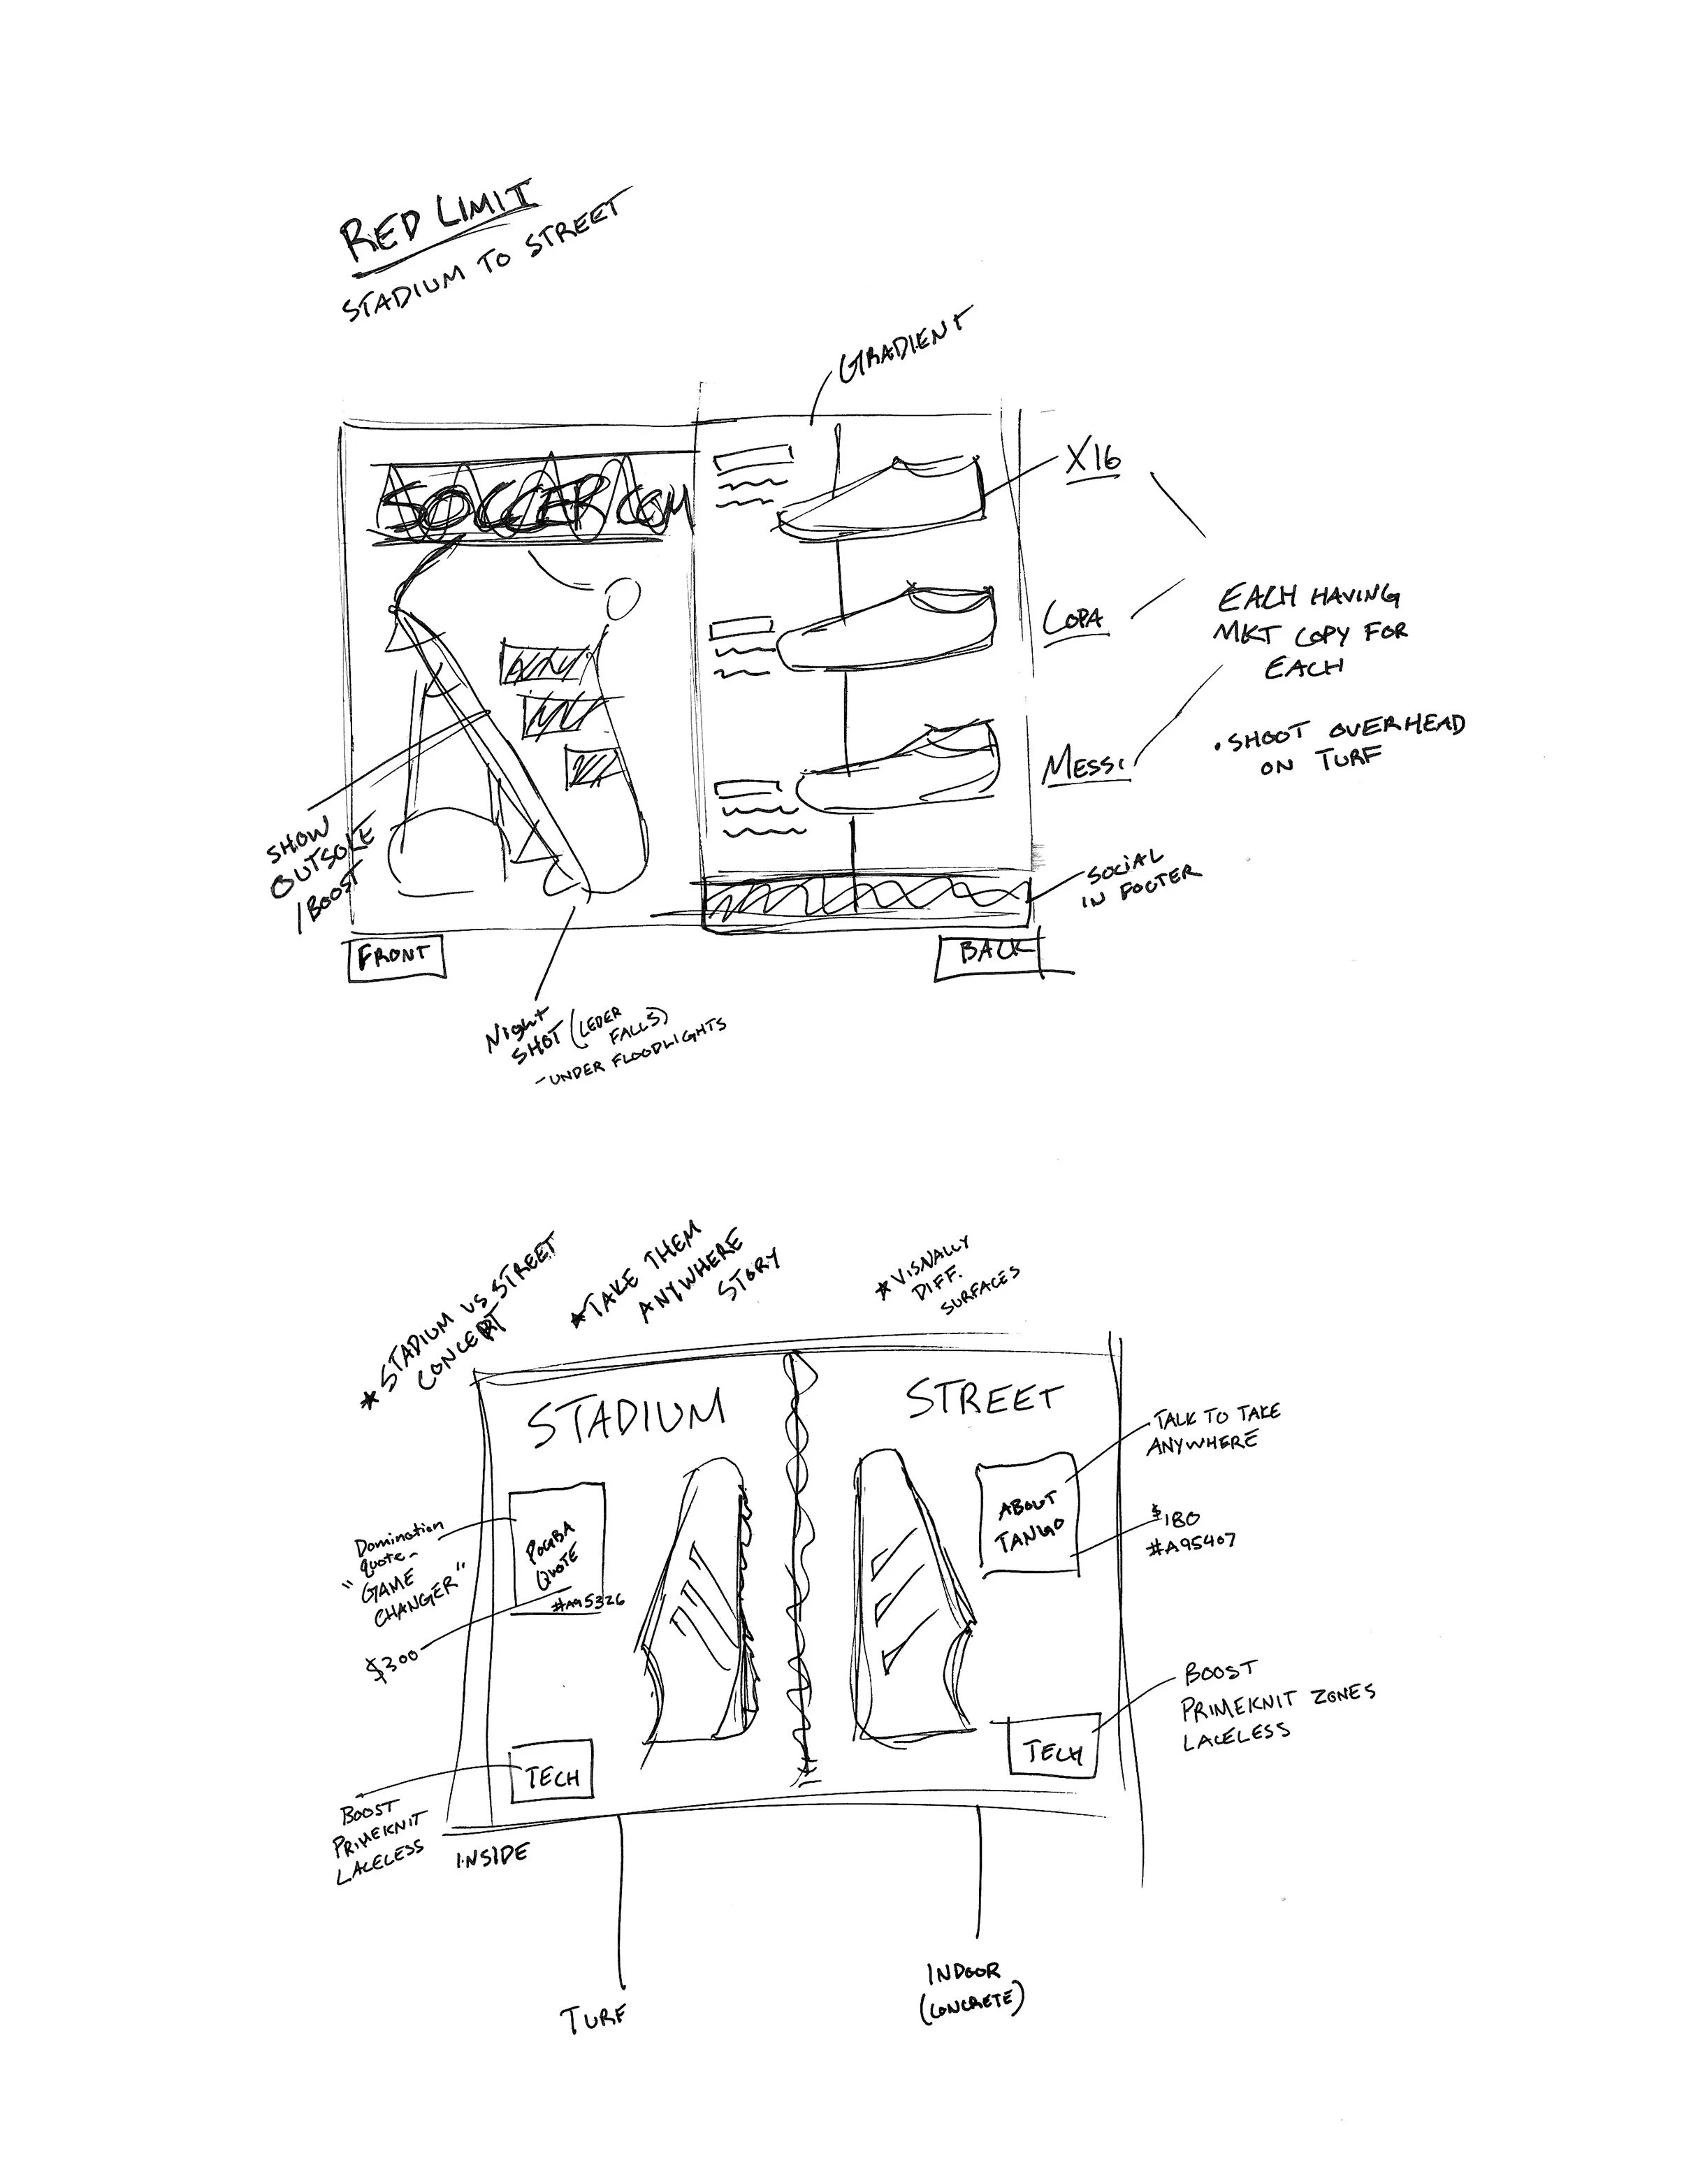 RED LIMIT
STADIUM TO STREET
GRADIENT
SOCCER.COM
X16
COPA
MESSI
EACH HAVING
MKT COPY FOR
EACH
• SHOOT OVERHEAD
ON TURF
SHOW
OUTSOLE
/BOOST
SOCIAL
IN FOOTER
FRONT
BACK
Night
SHOT (LEDER
FALLS)
- UNDER FLOODLIGHTS
* STADIUM VS STREET
CONCEPT
* TAKE THEM
ANYWHERE
STORY
* VISUALLY
DIFF.
SURFACES
STADIUM
STREET
TALK TO TAKE
ANYWHERE
ABOUT
TANGO
$180
#A95407
Domination
quote-
"GAME
CHANGER"
POGBA
QUOTE
#A95326
$300
BOOST
PRIMEKNIT ZONES
LACELESS
TECH
TECH
BOOST
PRIMEKNIT
LACELESS
INSIDE
TURF
INDOOR
(CONCRETE)